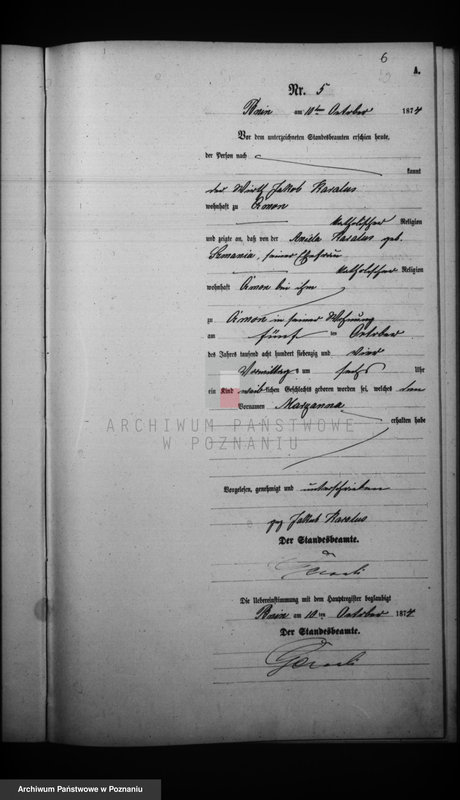 6
A.
Nr. 5
Bnin am 10ten October 1874
Vor dem unterzeichneten Standesbeamten erschien heute,
der Person nach
kannt
der Wirth Jakob Karalus
wohnhaft zu Konon
katholischer Religion
und zeigte an, daß von der Karalus geb.
seiner Ehefrau
katholischer Religion
wohnhaft bei ihm
zu in seiner Wohnung
am fünf ten October
des Jahres tausend acht hundert siebenzig und vier
Vormittags um sechs Uhr
ein Kind weiblichen Geschlechts geboren worden sei, welches den
Vornamen Maryanna
erhalten habe
ARCHIWUM PAŃSTWOWE
W POZNANIU
Vorgelesen, genehmigt und unterschrieben
gez Jakob Karalus
Der Standesbeamte.
Die Uebereinstimmung mit dem Hauptregister beglaubigt
Bnin am 10 ten October 1874.
Der Standesbeamte.
Archiwum Państwowe w Poznaniu